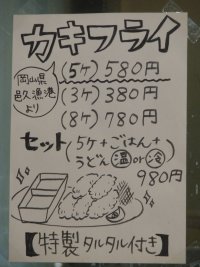 カキフライ
岡山県
邑久漁港
より
(5ケ) 580円
(3ケ) 380円
(8ケ) 780円
セット(5ケ+ごはん+
うどん 温or冷)
980円
【特製タルタル付き】